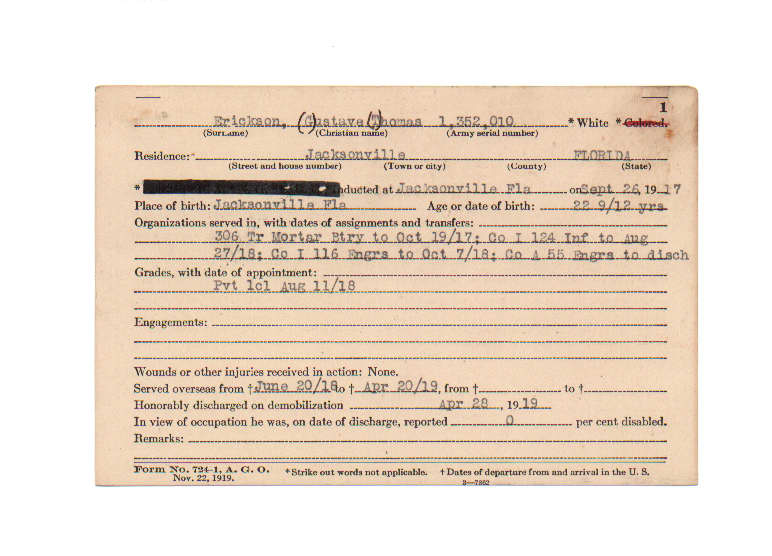 1
Erickson, (Gustave) Thomas 1,352,010 * White * Colored.
(Surname) (Christian name) (Army serial number)
Residence: Jacksonville FLORIDA
(Street and house number) (Town or city) (County) (State)
* nducted at Jacksonville Fla on Sept 26, 1917
Place of birth: Jacksonville Fla Age or date of birth: 22 9/12 yrs
Organizations served in, with dates of assignments and transfers:
306 Tr Mortar Btry to Oct 19/17; Co I 124 Inf to Aug
27/18; Co I 116 Engrs to Oct 7/18; Co A 55 Engrs to disch
Grades, with date of appointment:
Pvt 1cl Aug 11/18
Engagements:
Wounds or other injuries received in action: None.
Served overseas from † June 20/18 to † Apr 20/19, from † to †
Honorably discharged on demobilization Apr 28, 1919
In view of occupation he was, on date of discharge, reported 0 per cent disabled.
Remarks:
Form No. 724-1, A. G. O. * Strike out words not applicable. † Dates of departure from and arrival in the U. S.
Nov. 22, 1919. 3—7862